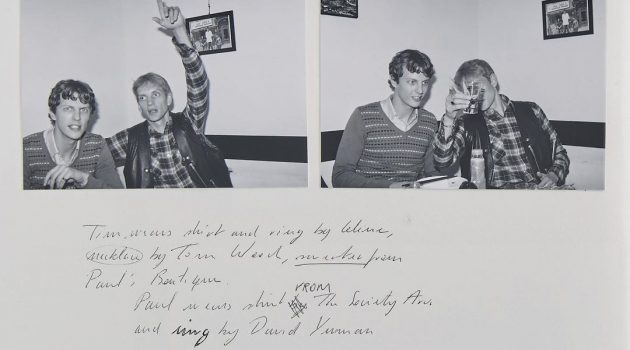 Tim wears shirt and ring by Celine,
necklace by Tom Wood, sweater from
Paul's Boutique.
Paul wears shirt FROM The Society
and ring by David Yurman